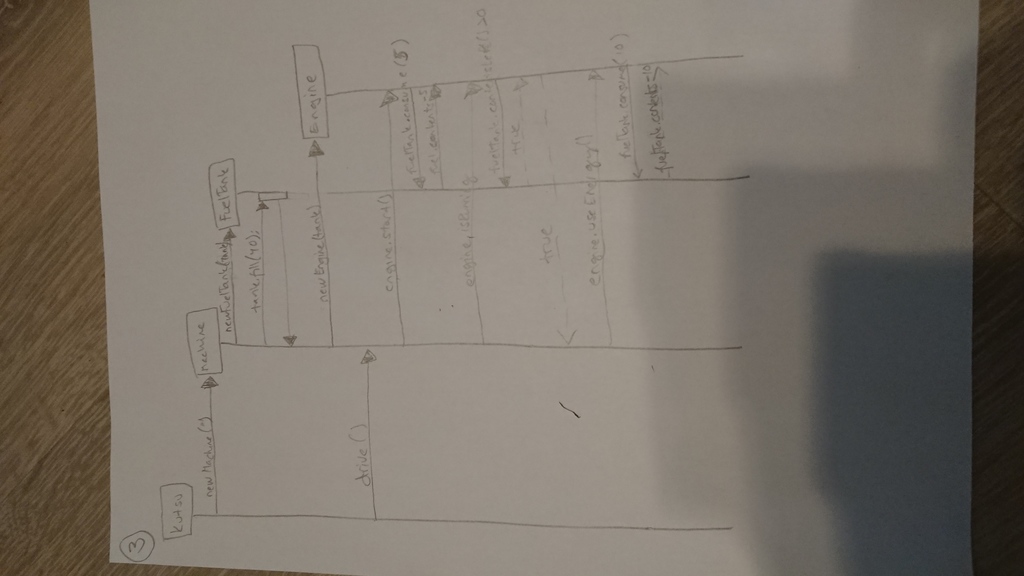 3
Kutsu
new Machine()
Machine
newFuelTank(tank)
FuelTank
tank.fill(40);
newEngine(tank)
Engine
drive()
engine.start()
fuelTank.consume(5)
fuel.contents-5
engine.isRunning
true
true
engine.useEnergy()
fuelTank.consume(10)
fuelTank.contents-10